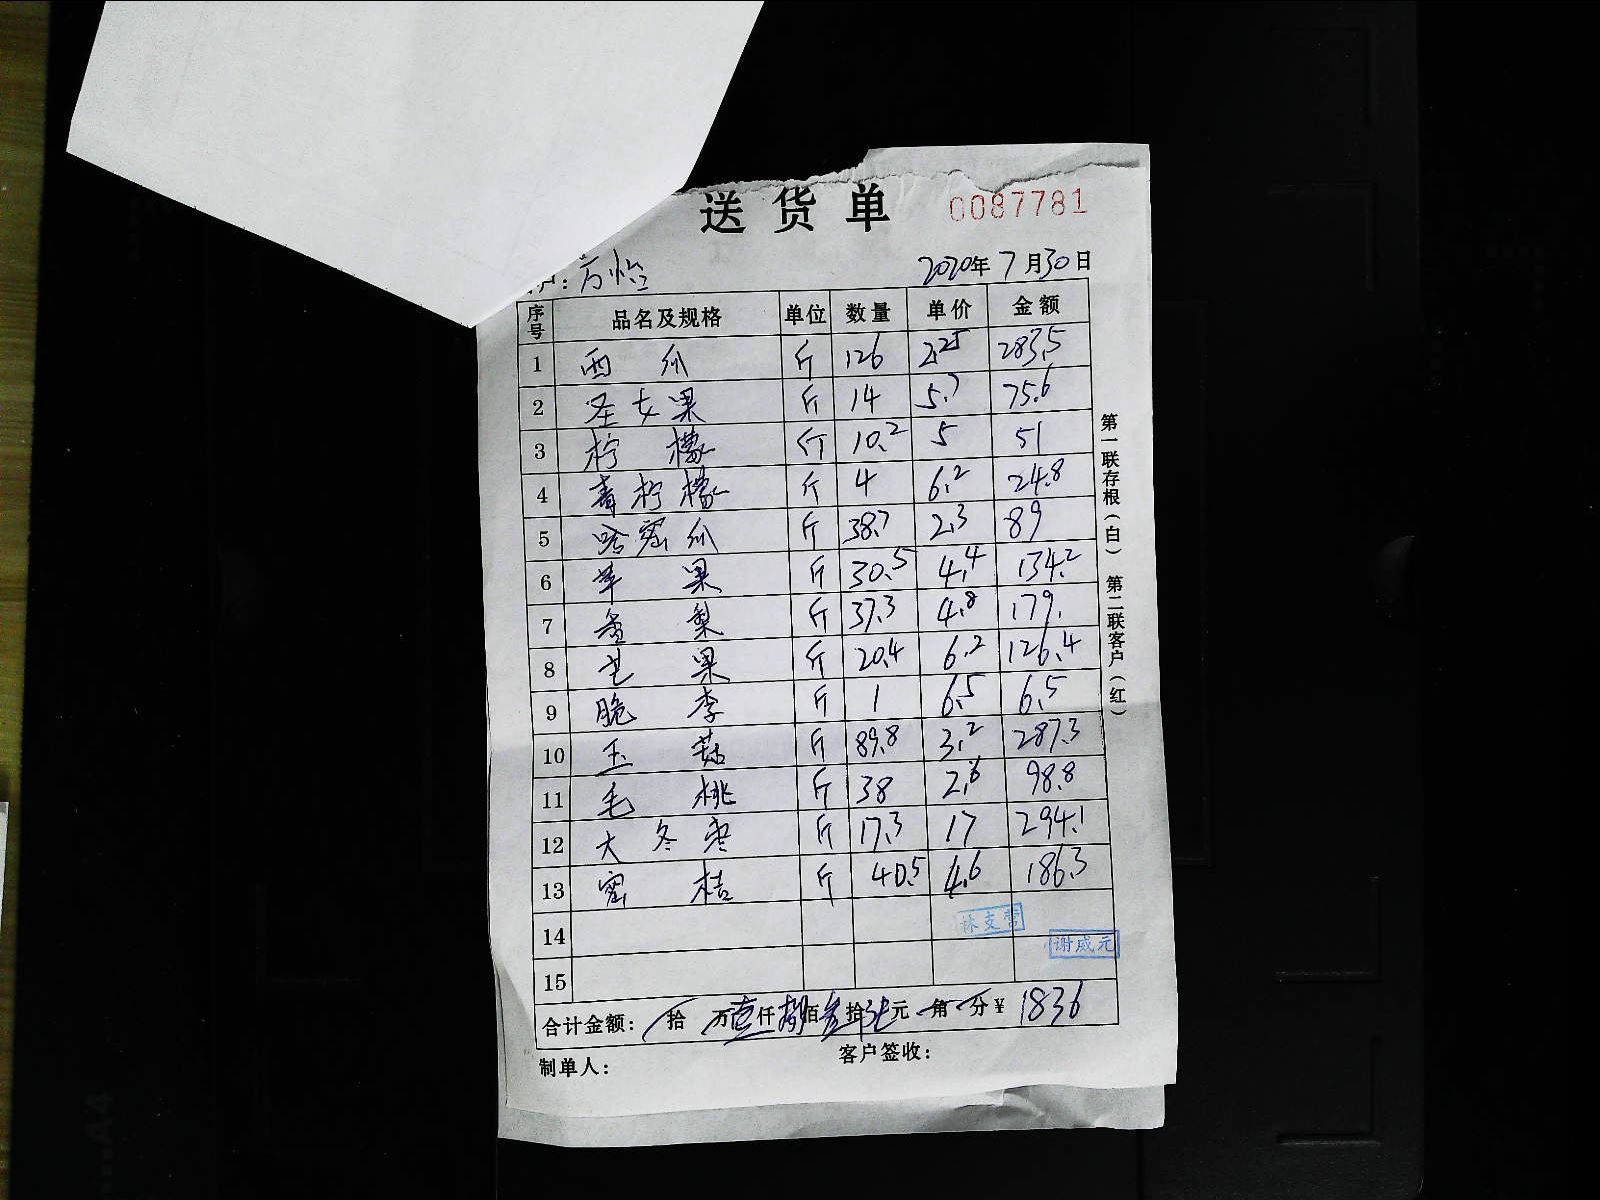 送货单 0087781
户：方怡 2020年7月30日
序号 品名及规格 单位 数量 单价 金额
1 西瓜 斤 126 2.25 283.5
2 圣女果 斤 14 5.7 75.6
3 柠檬 斤 10.2 5 51
4 青柠檬 斤 4 6.2 24.8
5 哈密瓜 斤 38.7 2.3 89
6 苹果 斤 30.5 4.4 134.2
7 贡梨 斤 37.3 4.8 179.
8 芒果 斤 20.4 6.2 126.4
9 脆李 斤 1 6.5 6.5
10 玉菇 斤 89.8 3.2 287.3
11 毛桃 斤 38 2.6 98.8
12 大冬枣 斤 17.3 17 294.1
13 蜜桔 斤 40.5 4.6 186.3
14 林支营
谢咸元
15
合计金额： 拾 万壹仟捌佰叁拾陆元 角 分￥ 1836
制单人： 客户签收：
第一联存根（白） 第二联客户（红）
A4